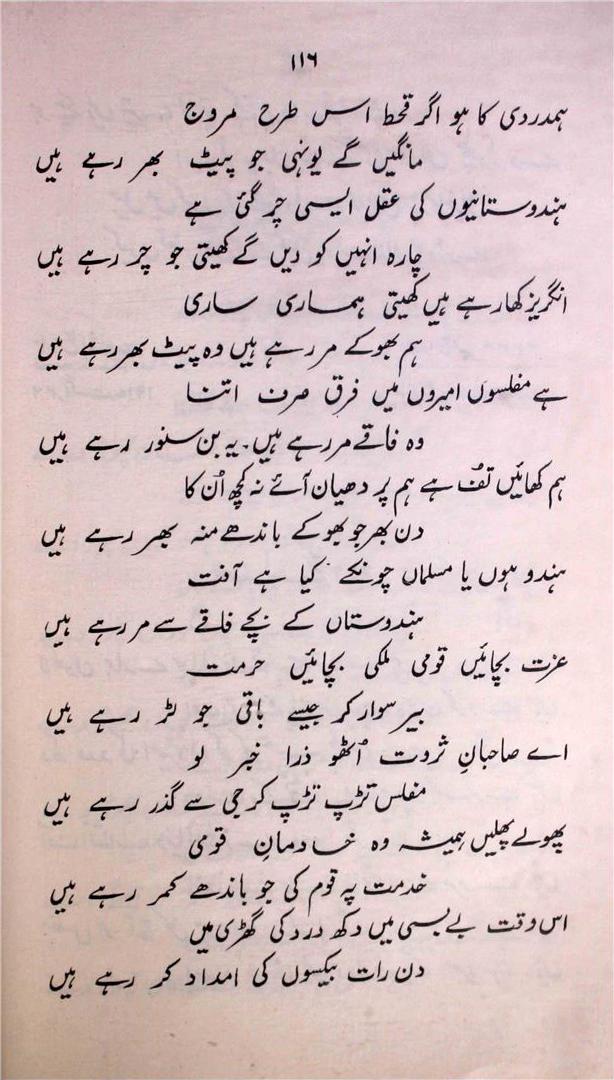 ۱۱۶
ہمدردی کا ہو اگر قحط اس طرح مروج
مانگیں گے یونہی جو پیٹ بھر رہے ہیں
ہندوستانیوں کی عقل ایسی چر گئی ہے
چارہ انہیں کو دیں گے کھیتی جو چر رہے ہیں
انگریز کھا رہے ہیں کھیتی ہماری ساری
ہم بھوکے مر رہے ہیں وہ پیٹ بھر رہے ہیں
ہے مفلسوں امیروں میں فرق صرف اتنا
وہ فاقے مر رہے ہیں۔ یہ بن سنور رہے ہیں
ہم کھائیں تُف ہے ہم پر دھیان آئے نہ کچھ اُن کا
دن بھر جو بھوکے باندھے منہ بھر رہے ہیں
ہندو ہوں یا مسلماں چونکے کیا ہے آفت
ہندوستاں کے بچے فاقے سے مر رہے ہیں
عزت بچائیں قومی ملکی بچائیں حرمت
بیر سوار کر جیسے باقی جو لڑ رہے ہیں
اے صاحبانِ ثروت اُٹھو ذرا خبر لو
مفلس تڑپ تڑپ کر جی سے گذر رہے ہیں
پھولے پھلیں ہمیشہ وہ خادمانِ قومی
خدمت پہ قوم کی جو باندھے کمر رہے ہیں
اس وقت بے بسی میں دکھ درد کی گھڑی میں
دن رات بیکسوں کی امداد کر رہے ہیں